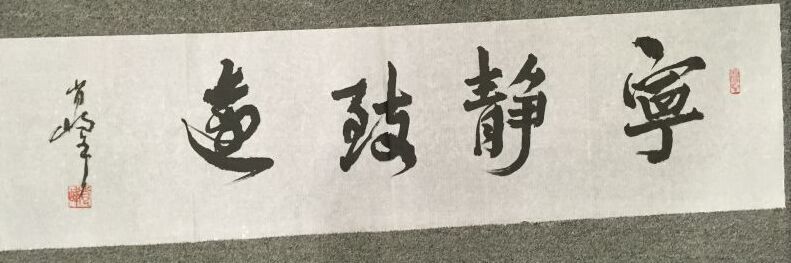 寧靜致遠
肖峰